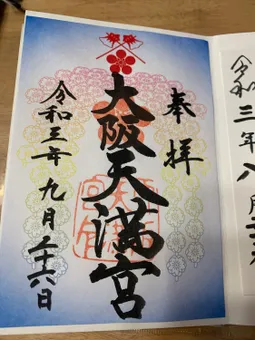 奉拝
大阪天満宮
令和三年九月二十六日
令和三年八月二